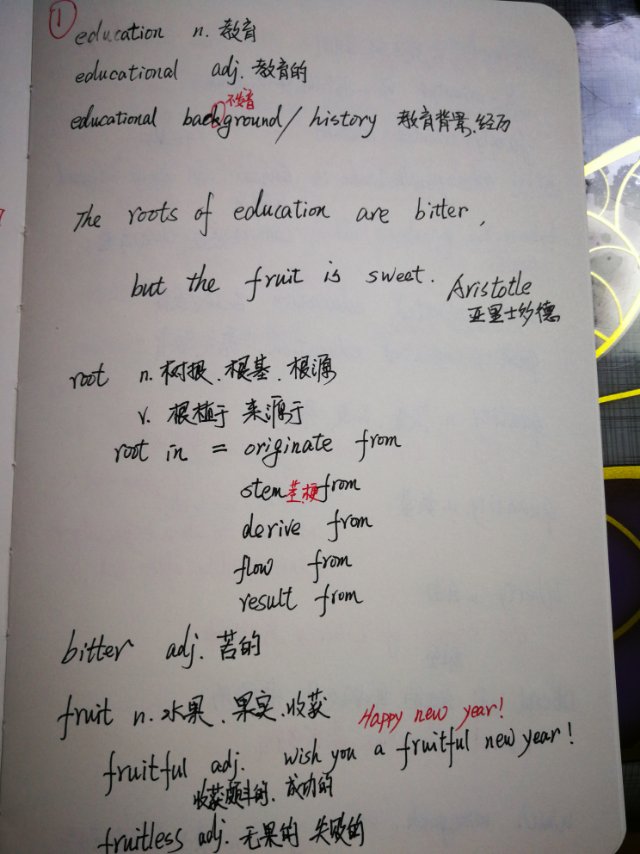 ①
education n. 教育
educational adj. 教育的
不发音
educational background/ history 教育背景、经历
The roots of education are bitter,
but the fruit is sweet. Aristotle
亚里士多德
root n. 树根、根基、根源
v. 根植于 来源于
root in = originate from
stem 茎,梗 from
derive from
flow from
result from
bitter adj. 苦的
fruit n. 水果、果实、收获 Happy new year!
fruitful adj. wish you a fruitful new year!
收获颇丰的、成功的
fruitless adj. 无果的 失败的